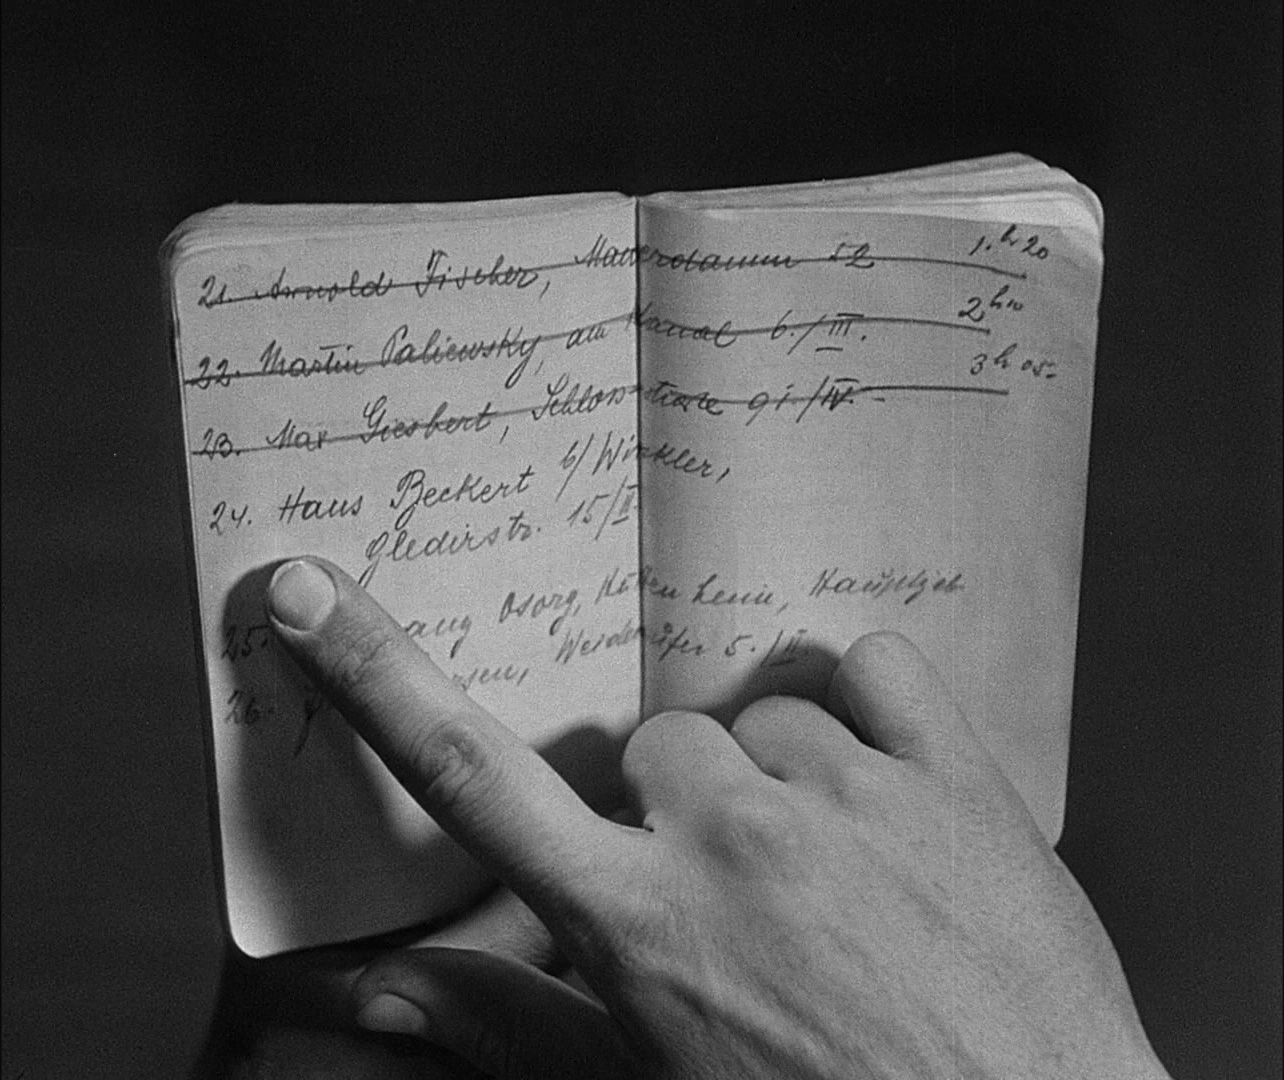 21. Arnold Fischer, Mauerdamm 52 1.h 20
22. Martin Paliewsky, am Kanal 6./III. 2h 10
23. Max Giesbert, Schlossstrasse 91./IV. 3h 05
24. Hans Beckert b/Winkler,
15/II
25. ang Hauptgeb.
26. sen, Weidenufer 5./II